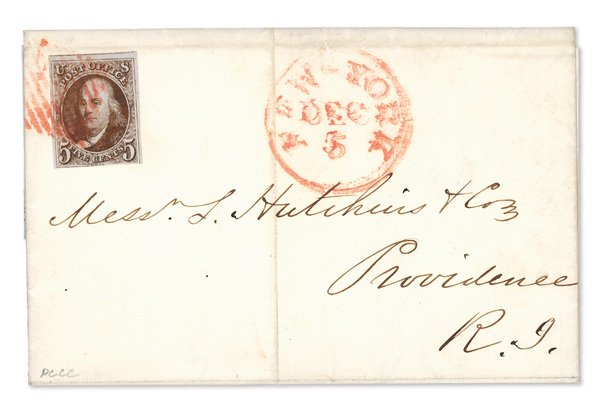 U S
POST OFFICE
5 FIVE CENTS 5
NEW-YORK
DEC
5
Messrs. L. Hutchins & Co
Providence
R.I.
PCCC